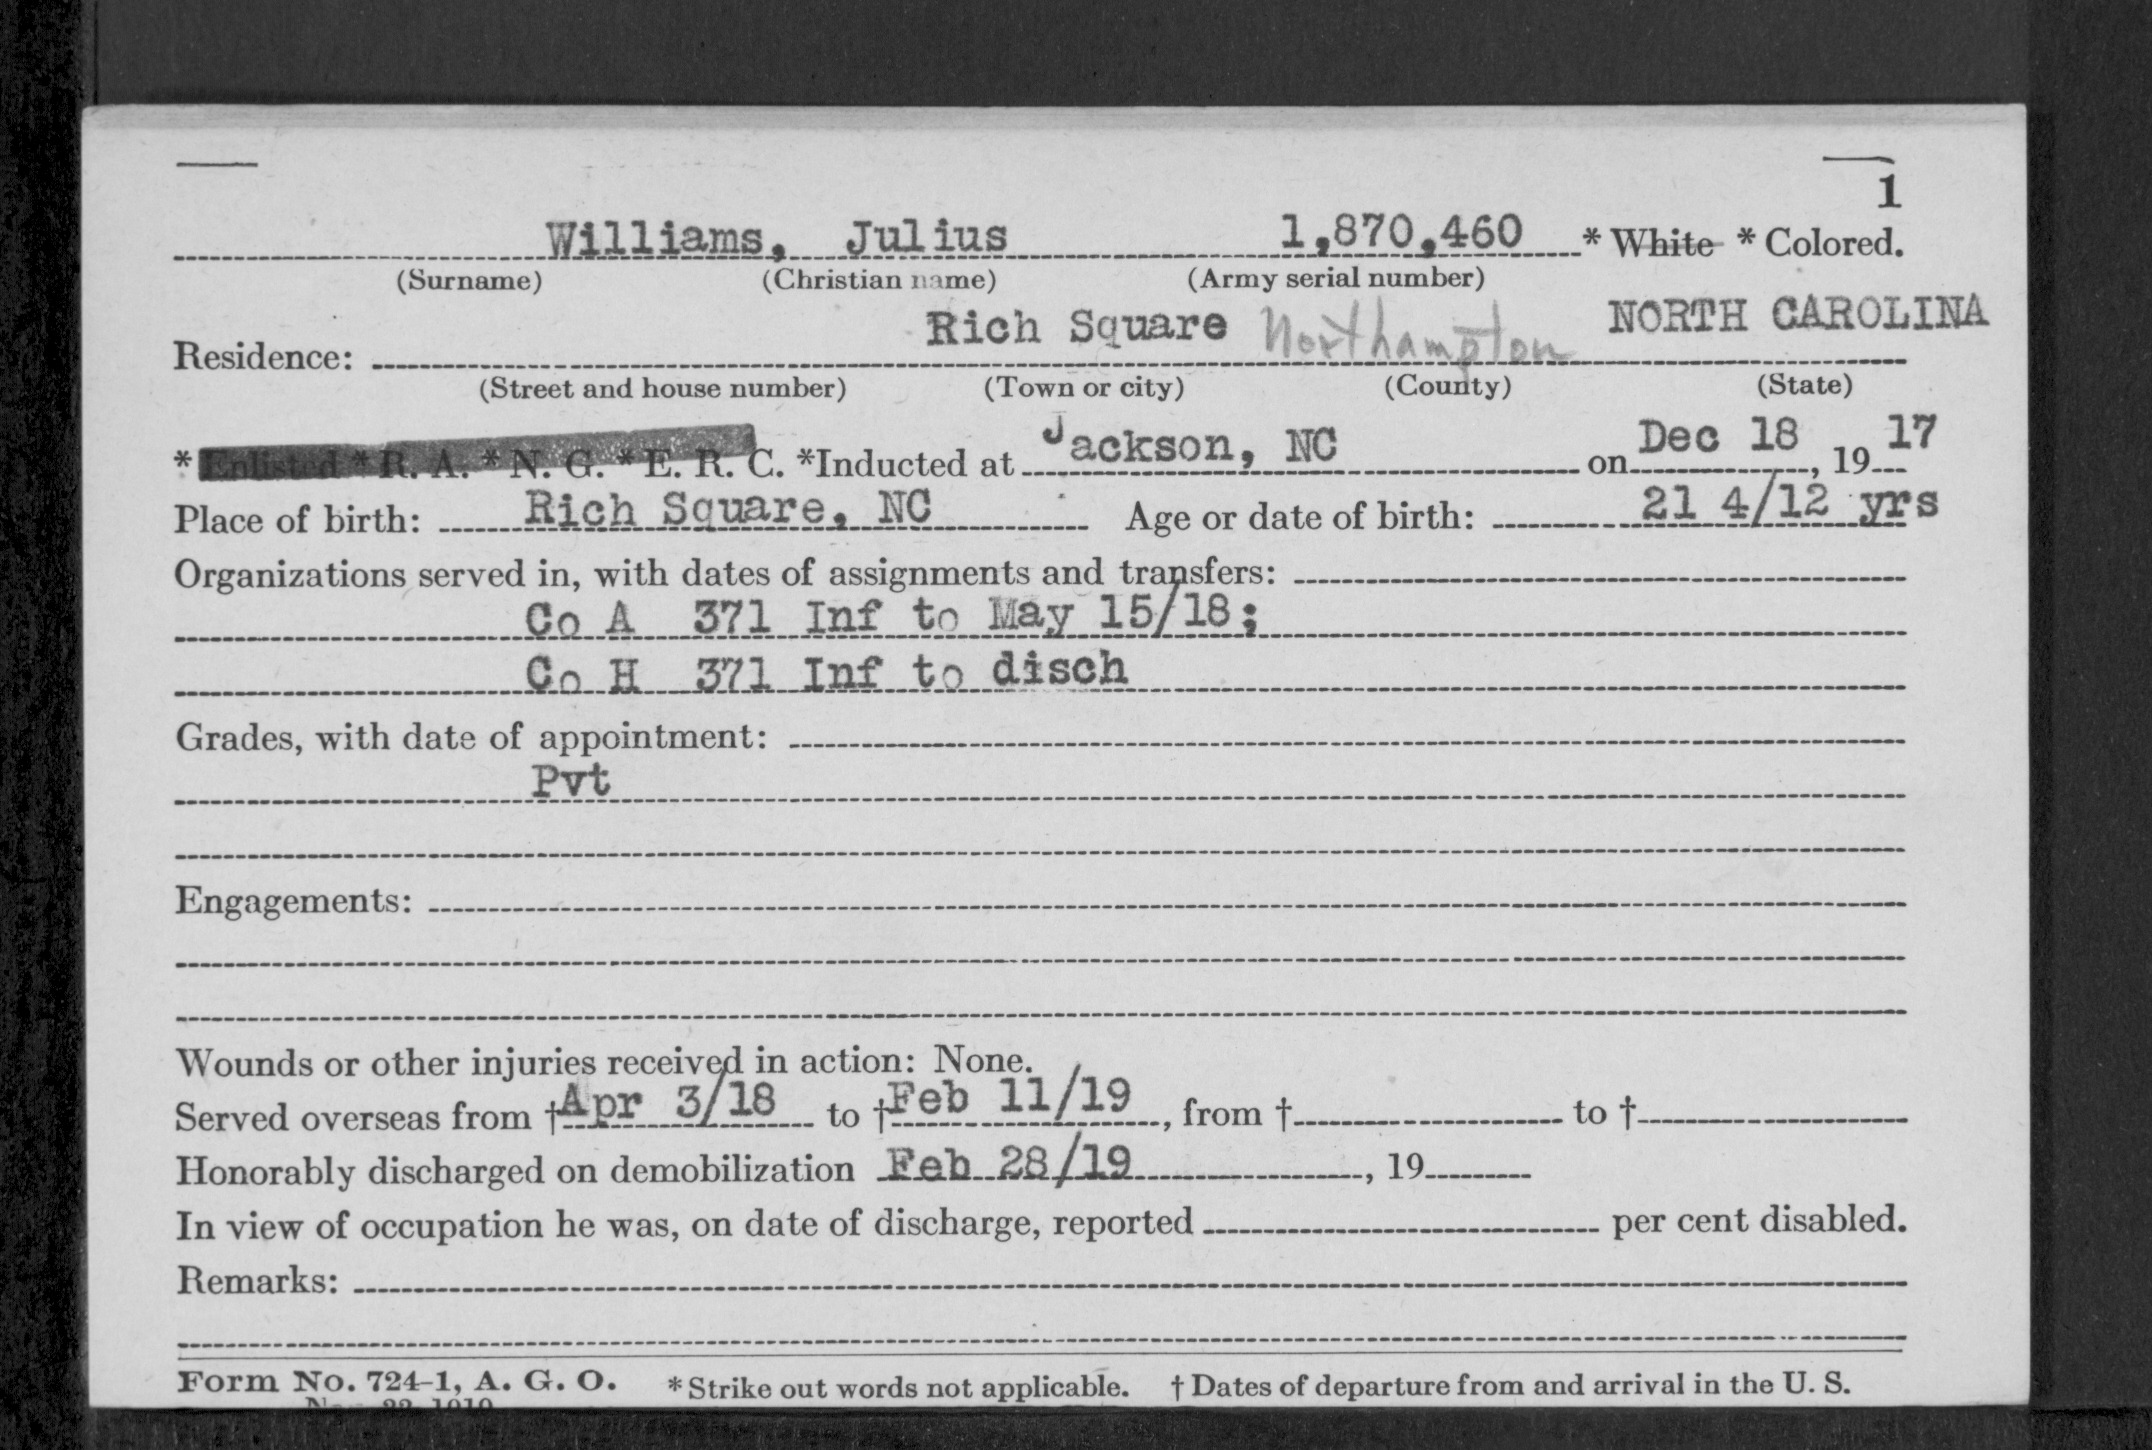 1
Williams, Julius 1,870,460 * White * Colored.
(Surname) (Christian name) (Army serial number)
Residence: Rich Square Northampton NORTH CAROLINA
(Street and house number) (Town or city) (County) (State)
* Enlisted * R. A. * N. G. * E. R. C. *Inducted at Jackson, NC on Dec 18, 1917
Place of birth: Rich Square, NC Age or date of birth: 21 4/12 yrs
Organizations served in, with dates of assignments and transfers:
Co A 371 Inf to May 15/18;
Co H 371 Inf to disch
Grades, with date of appointment:
Pvt
Engagements:
Wounds or other injuries received in action: None.
Served overseas from †Apr 3/18 to †Feb 11/19, from † to †
Honorably discharged on demobilization Feb 28/19, 19
In view of occupation he was, on date of discharge, reported per cent disabled.
Remarks:
Form No. 724-1, A. G. O. * Strike out words not applicable. † Dates of departure from and arrival in the U. S.